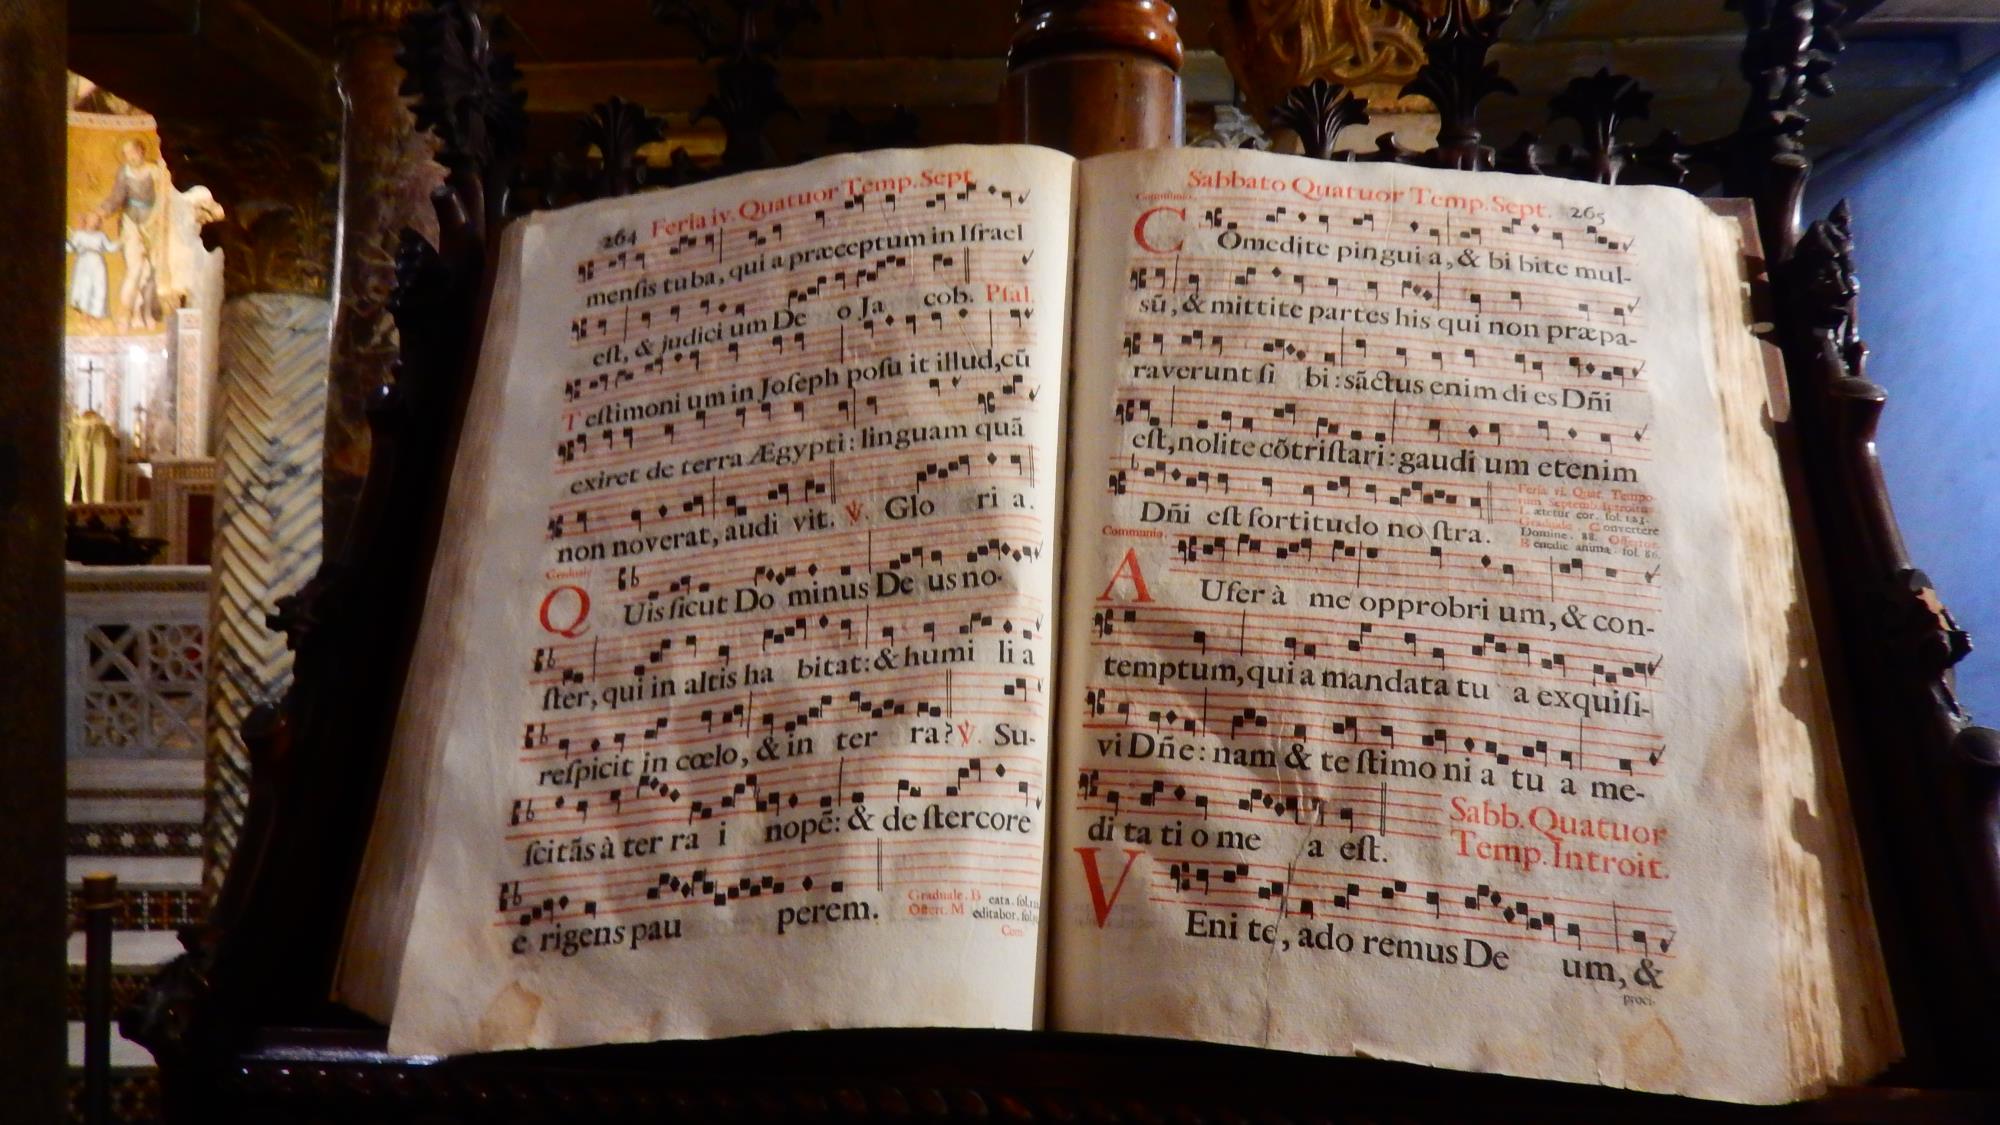 264 Feria iv. Quatuor Temp. Sept.
menſis tuba, qui a præceptum in Iſrael
eſt, & judici um De o Ja cob. Pſal.
T eſtimoni um in Joſeph poſu it illud, cū
exiret de terra Ægypti: linguam quā
non noverat, audi vit. ℣. Glo ri a.
Graduale
Q Uis ſicut Do minus De us no-
ſter, qui in altis ha bitat: & humi li a
reſpicit in cœlo, & in ter ra? ℣. Su-
ſcitās à ter ra i nopē: & de ſtercore
e rigens pau perem.
Graduale. B eata. fol.
Offert. M editabor. fol.
Com
Sabbato Quatuor Temp. Sept. 265
Communio.
C Omedite pingui a, & bi bite mul-
sū, & mittite partes his qui non præpa-
raverunt ſi bi: sāctus enim di es Dñi
eſt, nolite cōtriſtari: gaudi um etenim
Dñi eſt fortitudo no ſtra.
Feria vi. Quat. Tempo-
rum Septemb. Introitus
L ætetur cor. fol. 121.
Graduale. C onvertere
Domine. 88. Offertor.
B enedic anima. fol. 86.
Communio.
A Ufer à me opprobri um, & con-
temptum, qui a mandata tu a exquiſi-
vi Dñe: nam & te ſtimo ni a tu a me-
di ta ti o me a eſt.
Sabb. Quatuor
Temp. Introit.
V Eni te, ado remus De um, &
proci-